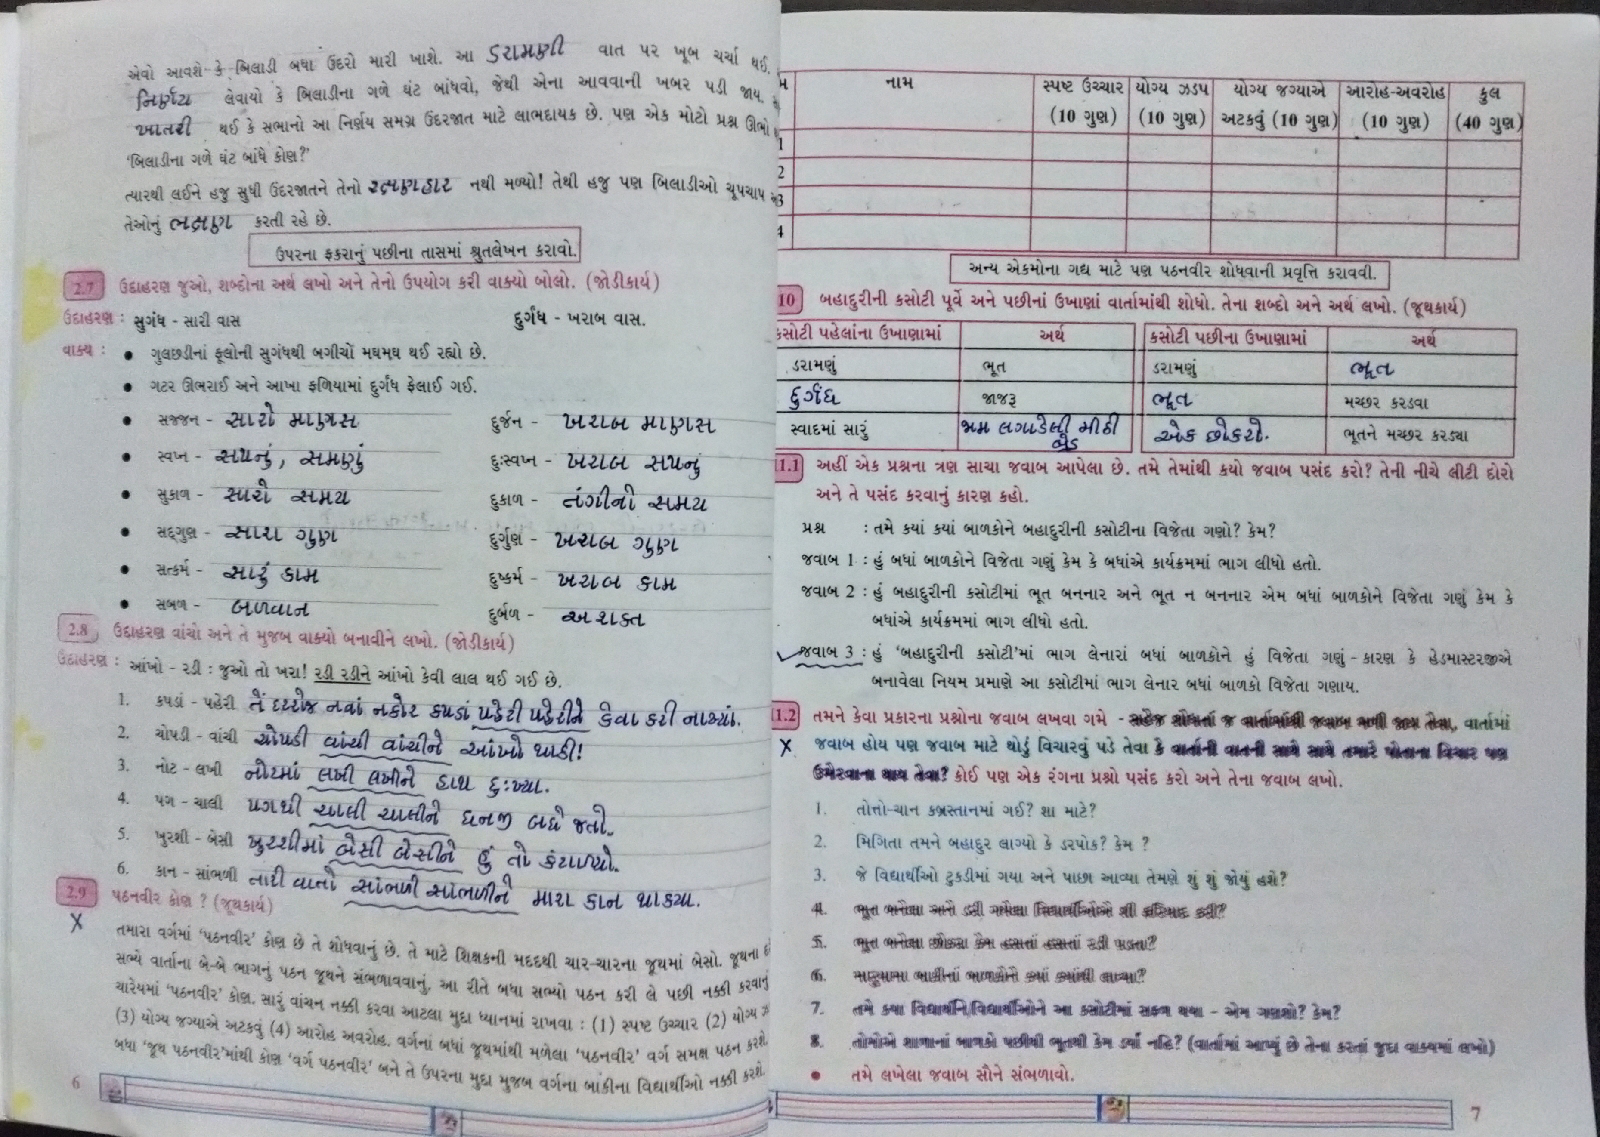 એવો આવશે કે બિલાડી બધા ઉંદરો મારી ખાશે. આ ડરામણી વાત પર ખૂબ ચર્ચા થઈ.
નિર્ણય લેવાયો કે બિલાડીના ગળે ઘંટ બાંધવો, જેથી એના આવવાની ખબર પડી જાય.
ખાતરી થઈ કે સભાનો આ નિર્ણય સમગ્ર ઉંદરજાત માટે લાભદાયક છે. પણ એક મોટો પ્રશ્ન ઊભો
'બિલાડીના ગળે ઘંટ બાંધે કોણ?'
ત્યારથી લઈને હજુ સુધી ઉંદરજાતને તેનો રક્ષણહાર નથી મળ્યો! તેથી હજુ પણ બિલાડીઓ ચૂપચાપ
તેઓનું ભક્ષણ કરતી રહે છે.
ઉપરના ફકરાનું પછીના તાસમાં શ્રુતલેખન કરાવો.
2.7 ઉદાહરણ જુઓ, શબ્દોના અર્થ લખો અને તેનો ઉપયોગ કરી વાક્યો બોલો. (જોડીકાર્ય)
ઉદાહરણ : સુગંધ - સારી વાસ દુર્ગંધ - ખરાબ વાસ.
વાક્ય : • ગુલછડીનાં ફૂલોની સુગંધથી બગીચો મઘમઘ થઈ રહ્યો છે.
• ગટર ઊભરાઈ અને આખા ફળિયામાં દુર્ગંધ ફેલાઈ ગઈ.
• સજ્જન - સારો માણસ દુર્જન - ખરાબ માણસ
• સ્વપ્ન - સપનું, સમણું દુઃસ્વપ્ન - ખરાબ સપનું
• સુકાળ - સારો સમય દુકાળ - તંગીનો સમય
• સદ્ગુણ - સારા ગુણ દુર્ગુણ - ખરાબ ગુણ
• સત્કર્મ - સારું કામ દુષ્કર્મ - ખરાબ કામ
• સબળ - બળવાન દુર્બળ - અશક્ત
2.8 ઉદાહરણ વાંચો અને તે મુજબ વાક્યો બનાવીને લખો. (જોડીકાર્ય)
ઉદાહરણ : આંખો - રડી : જુઓ તો ખરા! રડી રડીને આંખો કેવી લાલ થઈ ગઈ છે.
1. કપડાં - પહેરી તેં દરરોજ નવાં નકોર કપડાં પહેરી પહેરીને કેવા કરી નાખ્યાં.
2. ચોપડી - વાંચી ચોપડી વાંચી વાંચીને આંખો થાકી!
3. નોટ - લખી નોટમાં લખી લખીને હાથ દુઃખ્યા.
4. પગ - ચાલી પગથી ચાલી ચાલીને ધનજી બધે જતો.
5. ખુરશી - બેસી ખુરશીમાં બેસી બેસીને હું તો કંટાળ્યો.
6. કાન - સાંભળી તારી વાતો સાંભળી સાંભળીને મારા કાન થાક્યા.
2.9 પઠનવીર કોણ ? (જૂથકાર્ય)
X તમારા વર્ગમાં 'પઠનવીર' કોણ છે તે શોધવાનું છે. તે માટે શિક્ષકની મદદથી ચાર-ચારના જૂથમાં બેસો. જૂથના
સભ્યે વાર્તાના બે-બે ભાગનું પઠન જૂથને સંભળાવવાનું. આ રીતે બધા સભ્યો પઠન કરી લે પછી નક્કી કરવાનું
ચારેયમાં 'પઠનવીર' કોણ. સારું વાંચન નક્કી કરવા આટલા મુદ્દા ધ્યાનમાં રાખવા : (1) સ્પષ્ટ ઉચ્ચાર (2) યોગ્ય
(3) યોગ્ય જગ્યાએ અટકવું (4) આરોહ અવરોહ. વર્ગનાં બધાં જૂથમાંથી મળેલા 'પઠનવીર' વર્ગ સમક્ષ પઠન કરશે.
બધા 'જૂથ પઠનવીર'માંથી કોણ 'વર્ગ પઠનવીર' બને તે ઉપરના મુદ્દા મુજબ વર્ગના બાકીના વિદ્યાર્થીઓ નક્કી કરશે.
6
નામ સ્પષ્ટ ઉચ્ચાર (10 ગુણ) યોગ્ય ઝડપ (10 ગુણ) યોગ્ય જગ્યાએ અટકવું (10 ગુણ) આરોહ-અવરોહ (10 ગુણ) કુલ (40 ગુણ)
1
2
3
4
અન્ય એકમોના ગદ્ય માટે પણ પઠનવીર શોધવાની પ્રવૃત્તિ કરાવવી.
10 બહાદુરીની કસોટી પૂર્વે અને પછીનાં ઉખાણાં વાર્તામાંથી શોધો. તેના શબ્દો અને અર્થ લખો. (જૂથકાર્ય)
કસોટી પહેલાંના ઉખાણામાં અર્થ કસોટી પછીના ઉખાણામાં અર્થ
ડરામણું ભૂત ડરામણું ભૂત
દુર્ગંધ જાજરૂ ભૂત મચ્છર કરડવા
સ્વાદમાં સારું જામ લગાડેલી મીઠી બ્રેડ એક છોકરો. ભૂતને મચ્છર કરડ્યા
11.1 અહીં એક પ્રશ્નના ત્રણ સાચા જવાબ આપેલા છે. તમે તેમાંથી કયો જવાબ પસંદ કરો? તેની નીચે લીટી દોરો
અને તે પસંદ કરવાનું કારણ કહો.
પ્રશ્ન : તમે કયાં કયાં બાળકોને બહાદુરીની કસોટીના વિજેતા ગણો? કેમ?
જવાબ 1 : હું બધાં બાળકોને વિજેતા ગણું કેમ કે બધાંએ કાર્યક્રમમાં ભાગ લીધો હતો.
જવાબ 2 : હું બહાદુરીની કસોટીમાં ભૂત બનનાર અને ભૂત ન બનનાર એમ બધાં બાળકોને વિજેતા ગણું કેમ કે
બધાંએ કાર્યક્રમમાં ભાગ લીધો હતો.
જવાબ 3 : હું 'બહાદુરીની કસોટી'માં ભાગ લેનારાં બધાં બાળકોને હું વિજેતા ગણું - કારણ કે હેડમાસ્ટરજીએ
બનાવેલા નિયમ પ્રમાણે આ કસોટીમાં ભાગ લેનાર બધાં બાળકો વિજેતા ગણાય.
11.2 તમને કેવા પ્રકારના પ્રશ્નોના જવાબ લખવા ગમે - સહેજ શોધતાં જ વાર્તામાંથી જવાબ મળી જાય તેવા, વાર્તામાં
X જવાબ હોય પણ જવાબ માટે થોડું વિચારવું પડે તેવા કે વાર્તાની વાતની સાથે સાથે તમારે પોતાના વિચાર પણ
ઉમેરવાના થાય તેવા? કોઈ પણ એક રંગના પ્રશ્નો પસંદ કરો અને તેના જવાબ લખો.
1. તોત્તો-ચાન કબ્રસ્તાનમાં ગઈ? શા માટે?
2. મિગિતા તમને બહાદુર લાગ્યો કે ડરપોક? કેમ ?
3. જે વિદ્યાર્થીઓ ટુકડીમાં ગયા અને પાછા આવ્યા તેમણે શું શું જોયું હશે?
4. ભૂત બનેલા અને ડરી ગયેલા વિદ્યાર્થીઓએ શી ફરિયાદ કરી?
5. ભૂત બનેલા છોકરા કેમ હસતાં હસતાં રડી પડતા?
6.
7. તમે કયા વિદ્યાર્થીને/વિદ્યાર્થીઓને આ કસોટીમાં સફળ થયા - એમ ગણશો? કેમ?
8. તોમોએ શાળાનાં બાળકો પછીથી ભૂતથી કેમ ડર્યાં નહિ? (વાર્તામાં આપ્યું છે તેના કરતાં જુદા વાક્યમાં લખો)
• તમે લખેલા જવાબ સૌને સંભળાવો.
7